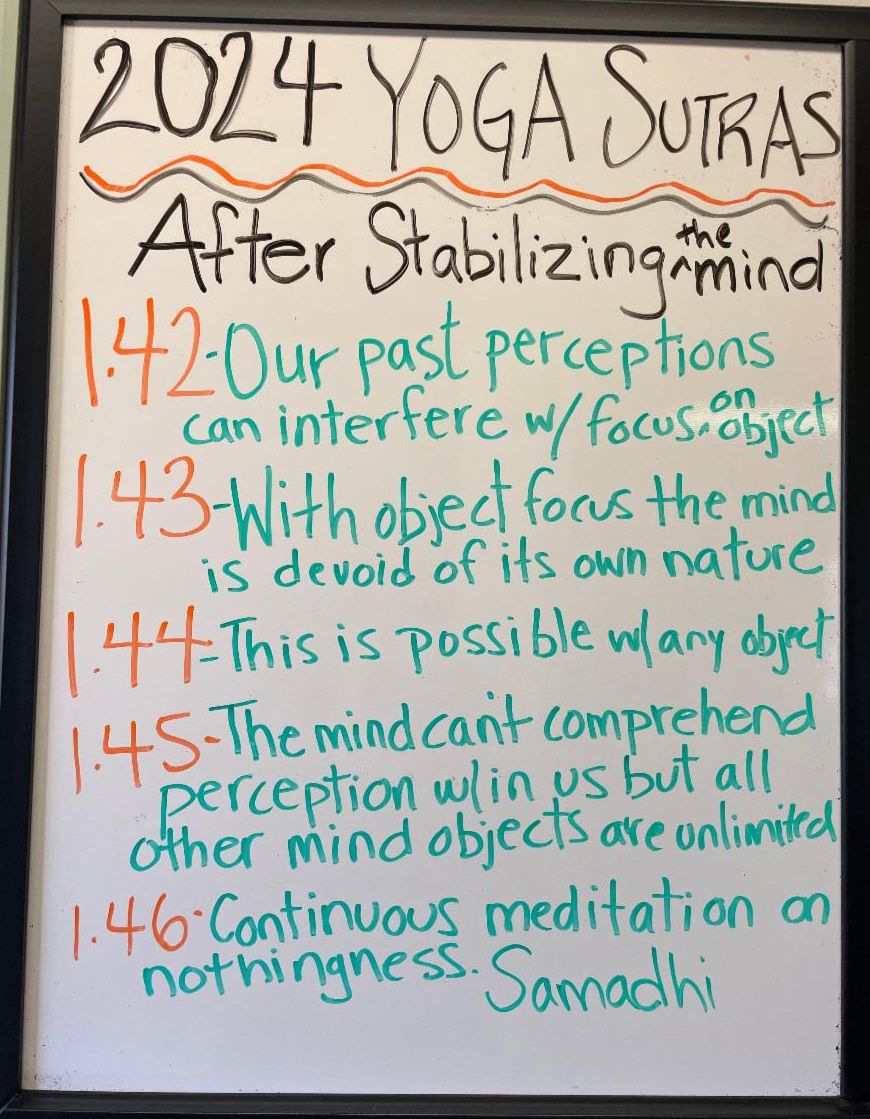 2024 YOGA SUTRAS
After Stabilizing ^the mind
1.42-Our past perceptions
can interfere w/ focus ^on object
1.43-With object focus the mind
is devoid of its own nature
1.44-This is possible w/any object
1.45-The mind can't comprehend
perception w/in us but all
other mind objects are unlimited
1.46-Continuous meditation on
nothingness. Samadhi